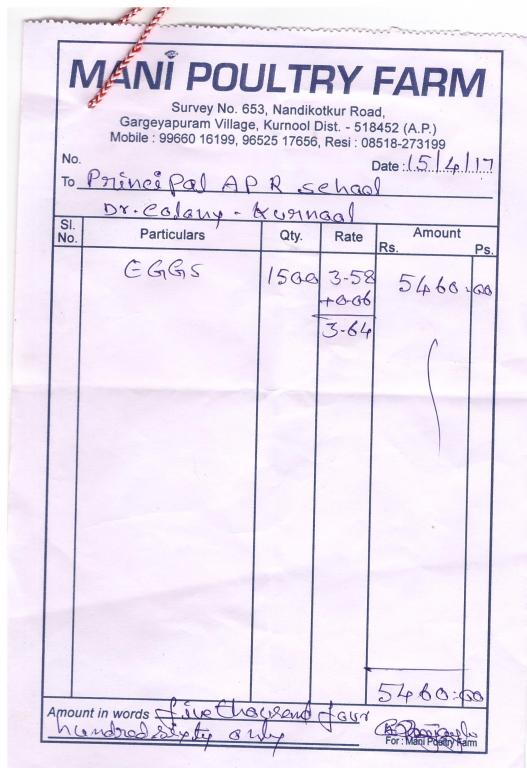 MANI POULTRY FARM
Survey No. 653, Nandikotkur Road,
Gargeyapuram Village, Kurnool Dist. - 518452 (A.P.)
Mobile : 99660 16199, 96525 17656, Resi : 08518-273199
No. Date : 15/4/17
To Principal A P R school
Dr. Colany - Kurnool
Sl. No. Particulars Qty. Rate Amount Rs. Ps.
EGGS 1500 3-58 5460=00
+0-06
3-64
5460=00
Amount in words five thousand four
hundred sixty only
For : Mani Poultry Farm